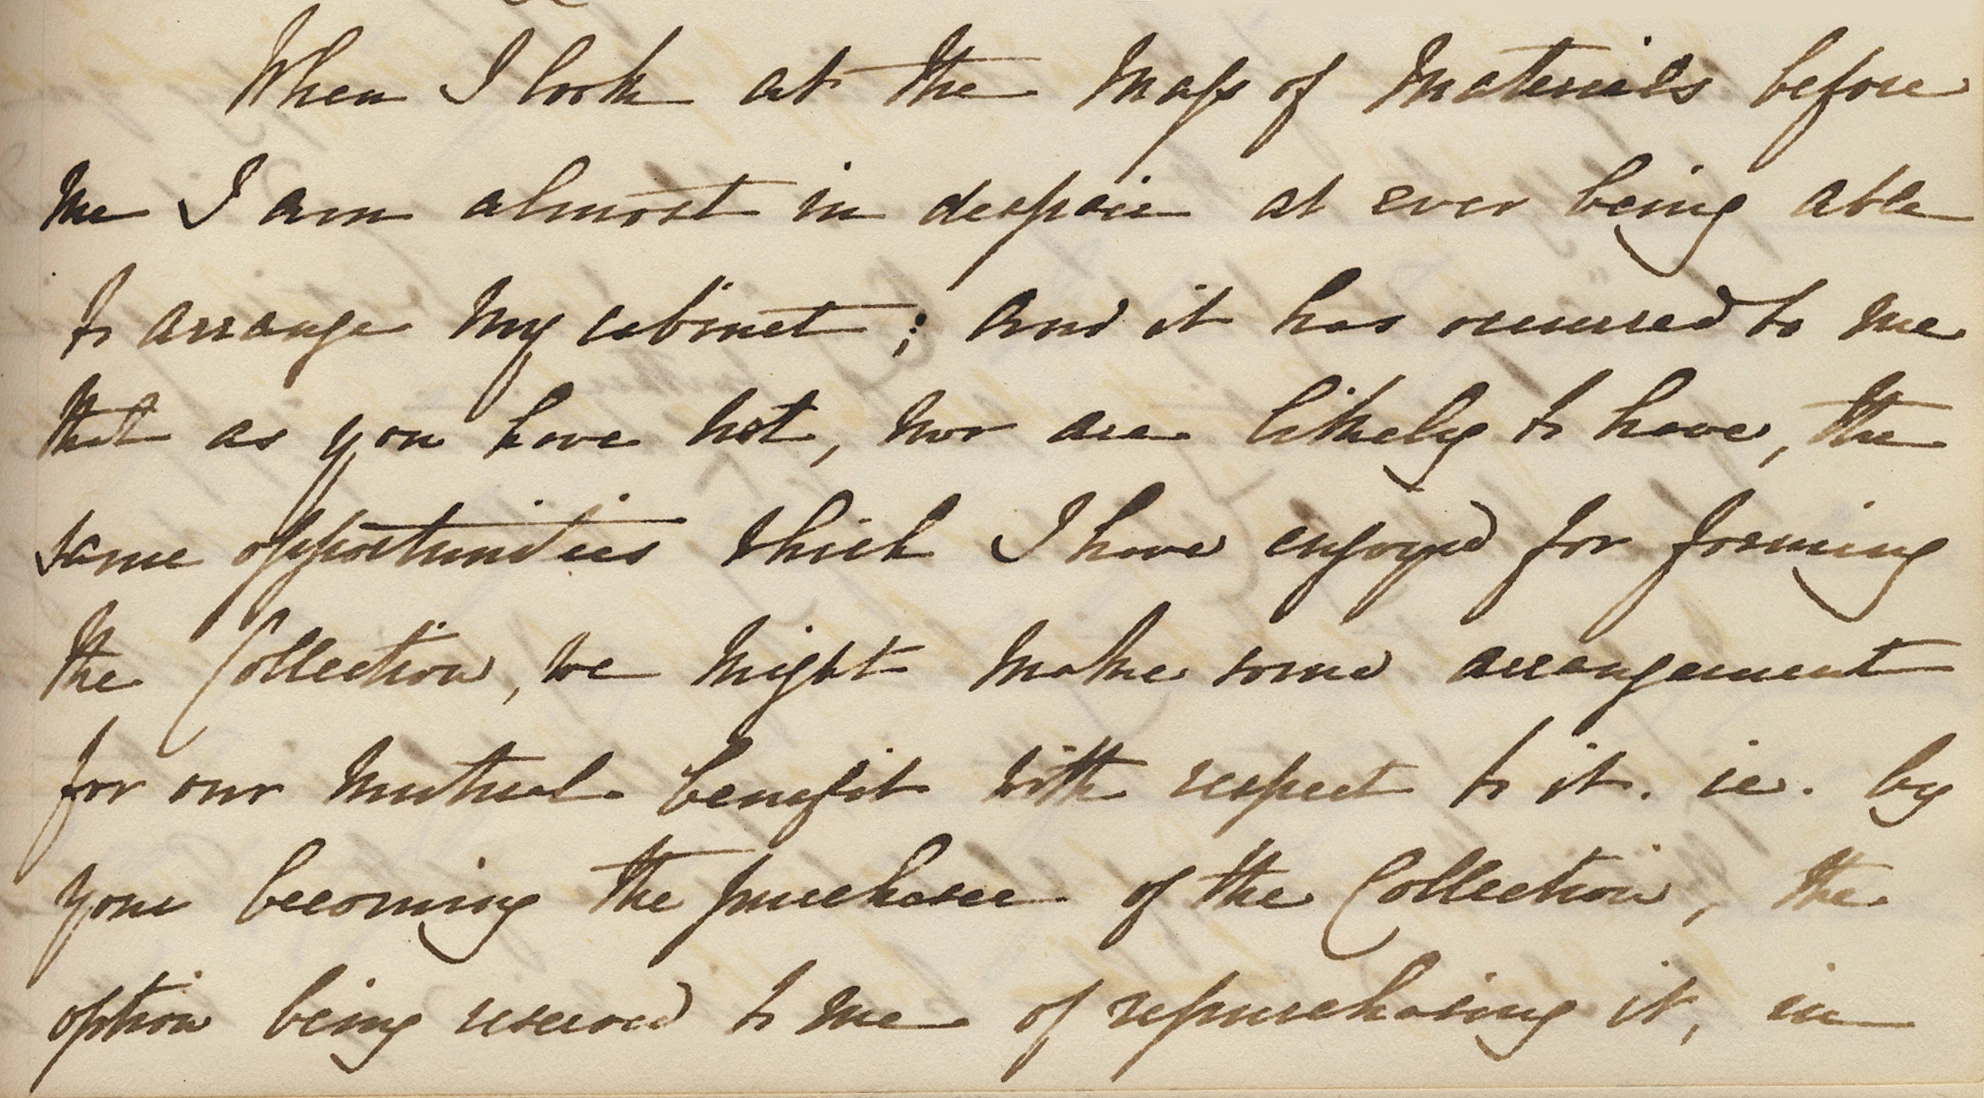 When I look at the Mass of Materials before
me I am almost in despair at ever being able
to arrange my cabinet; and it has occurred to me
that as you have not, nor are likely to have, the
same opportunities which I have enjoyed for forming
the Collection, we might make some arrangement
for our mutual benefit with respect to it. ie. by
your becoming the purchaser of the Collection, the
option being reserved to me of repurchasing it, in